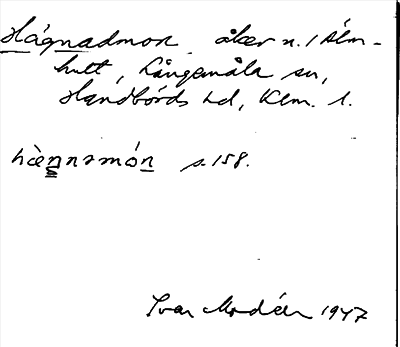 Hägnadmon åker n. 1 Älm-
hult, Långemåla sn,
Handbörds hd, Klm. l.
hæ̀nnəmón s. 158.
Ivar Modéer 1947